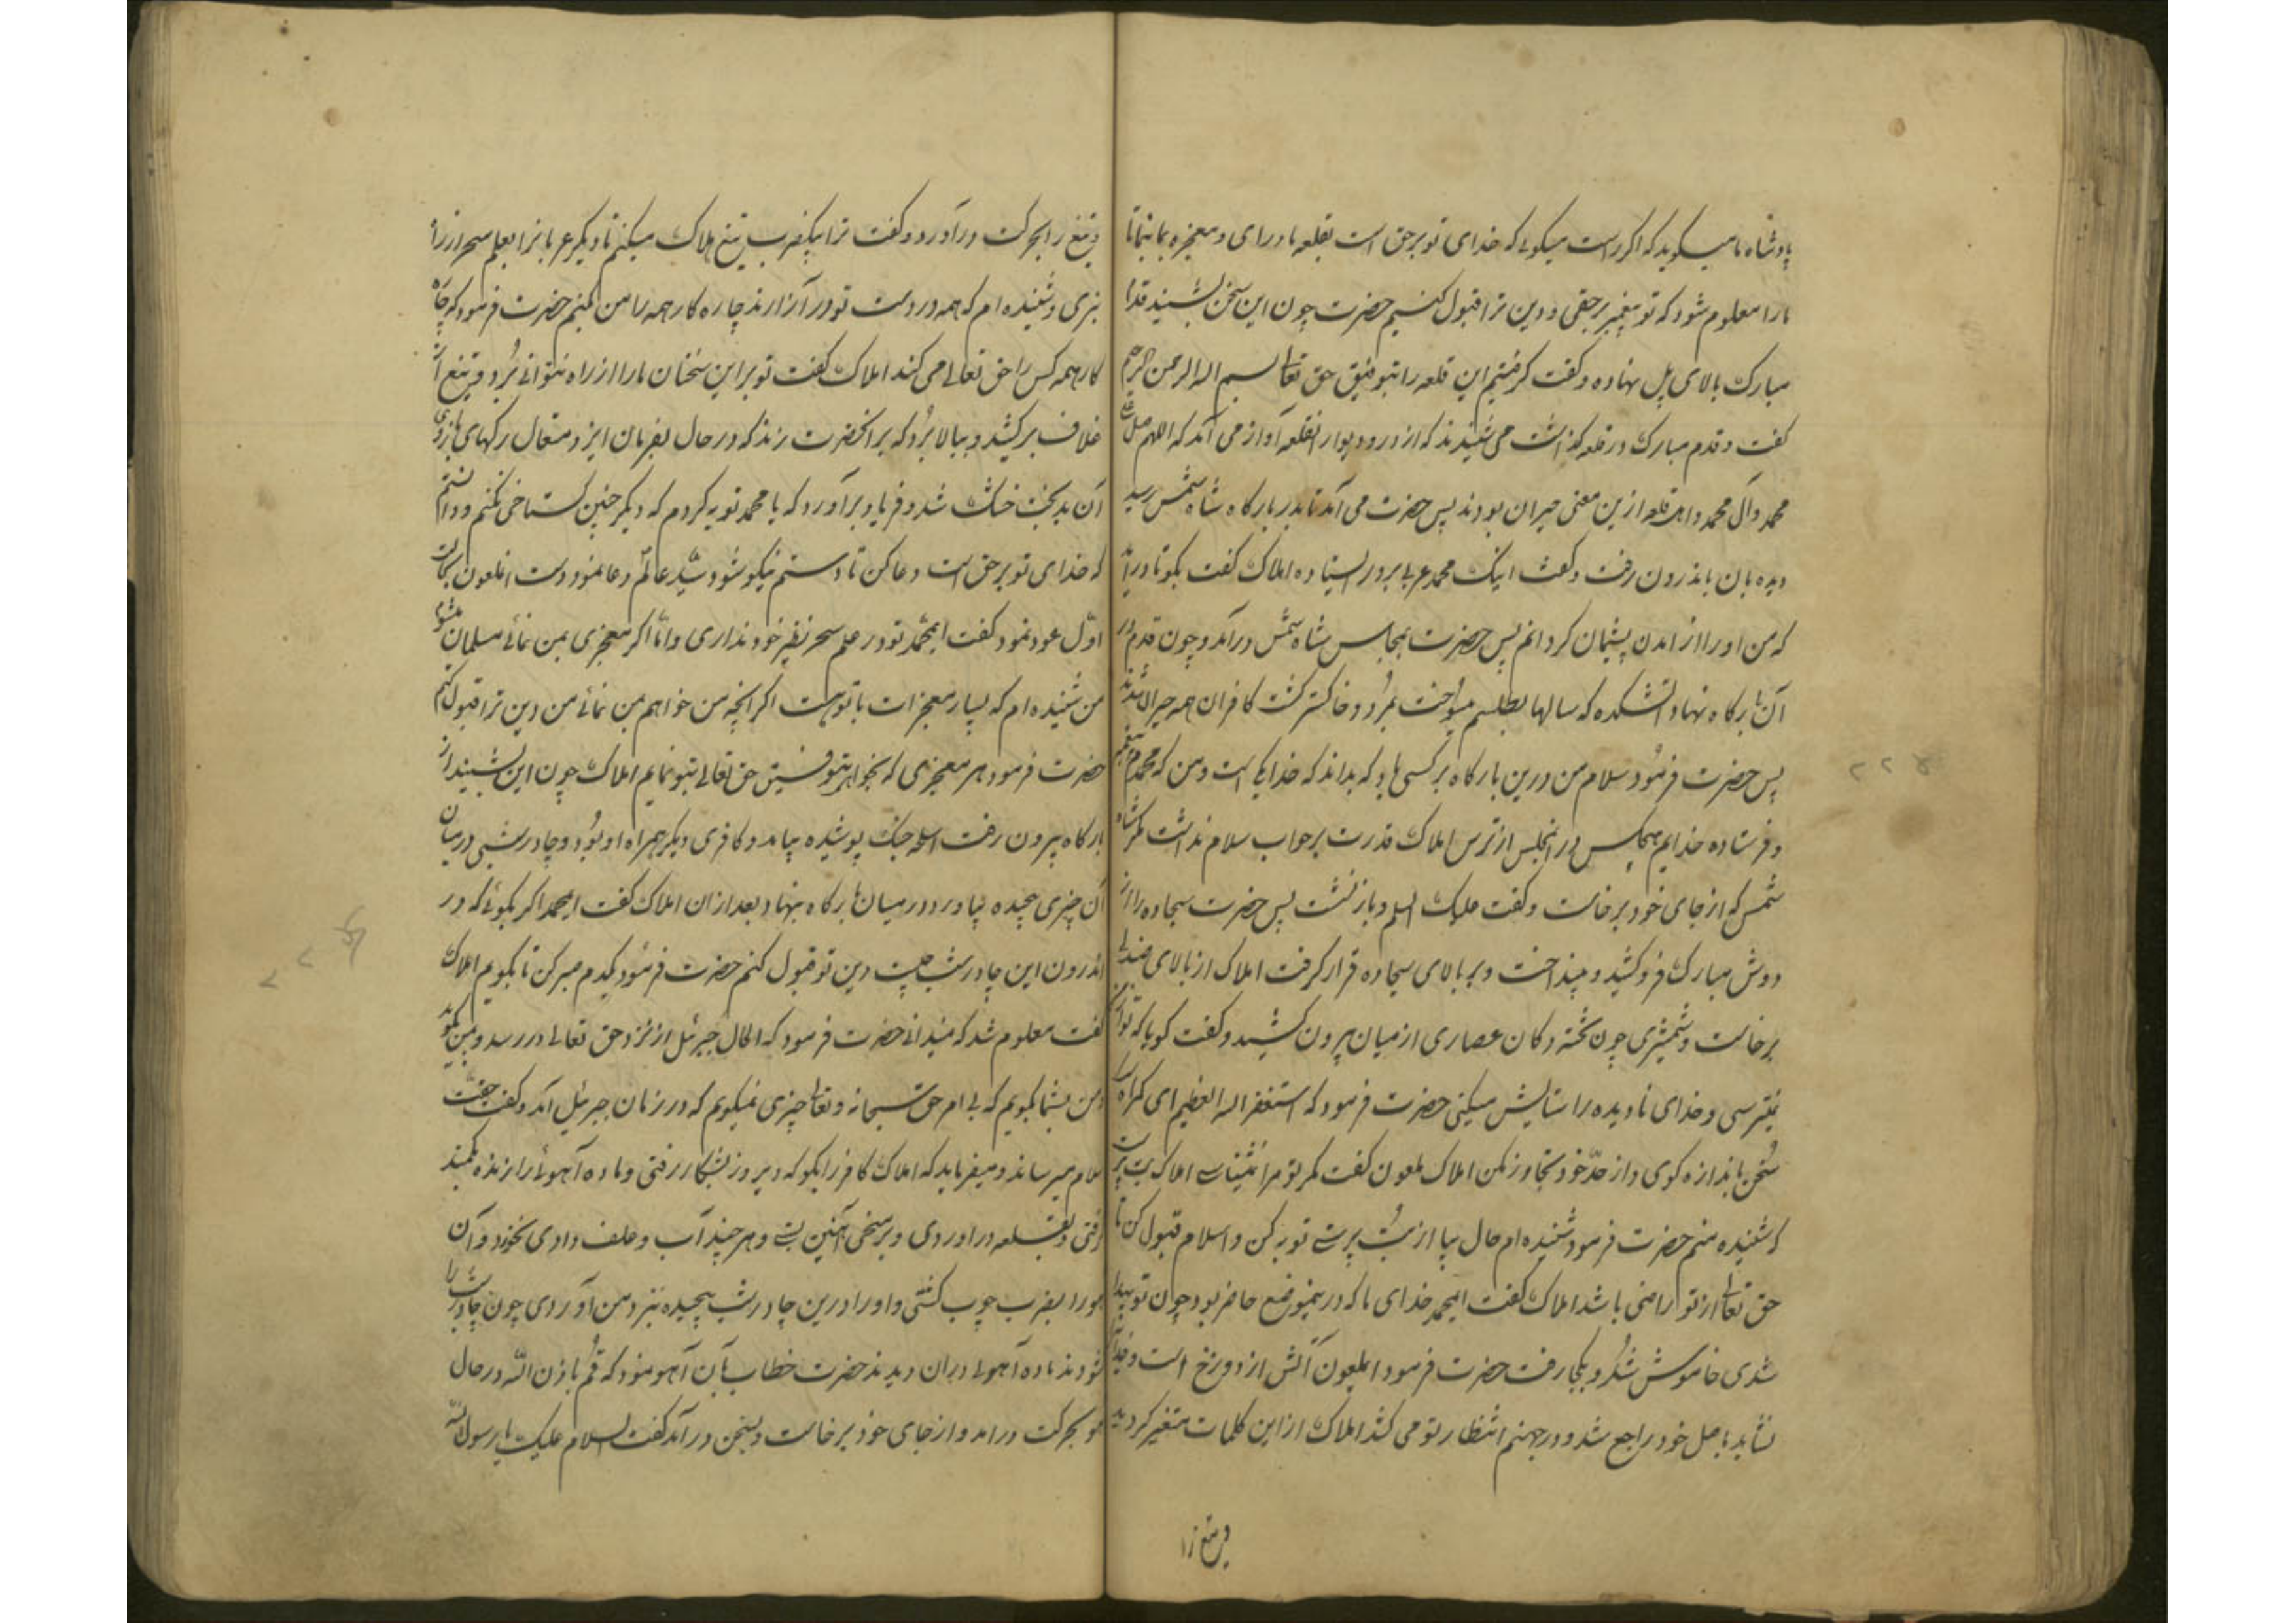 پادشاه ما میگوید که اگر راست میگوئی که خدای تو برحق است بقلعه ما درای و معجزه بما بنما تا
ما را معلوم شود که تو پیغمبر برحقی و دین ترا قبول کنیم حضرت چون این سخن بشنید قدم
مبارک بالای پل نهاده و گفت گرفتیم این قلعه را بتوفیق حق تعا بسم الله الرحمن الرحیم
گفت و قدم مبارک در قلعه گذاشت می شنیدند که از در و دیوار انقلعه آواز می آمد که اللهم صل علی
محمد و آل محمد و اهل قلعه ازین معنی حیران بودند پس حضرت می آمد تا بدر بارگاه شاه شمس رسید
دیده بان باندرون رفت و گفت اینک محمد عربی بر در ایستاده املاک گفت بگو تا دراید
که من او را از امدن پشیمان گردانم پس حضرت بمجلس شاه شمس درآمد و چون قدم در
آن بارگاه نهاد اتشکده که سالها بطلسم میسوخت بمرد و خاکستر گشت کافران همه حیران شدند
پس حضرت فرمود سلام من درین بارگاه بر کسی باد که بداند که خدا یکی است و من که محمدم پیغمبر
و فرستاده خدایم هیچکس در انمجلس از ترس املاک قدرت بر جواب سلام نداشت مگر شاه
شمس که از جای خود برخاست و گفت علیک السلم و باز نشست پس حضرت سجاده را از
دوش مبارک فرو کشید و بینداخت و بر بالای سجاده قرار گرفت املاک از بالای صندلی
برخاست و شمشیری چون تخته دکان عصاری از میان بیرون کشید و گفت گویا که تو از
نمیترسی و خدای نادیده را ستایش میکنی حضرت فرمود که استغفر الله العظیم ای گمراه
سخن باندازه گوی و از حد خود تجاوز مکن املاک ملعون گفت مگر تو مرا نشناسی املاک بت پرست
که شنیده منم حضرت فرمود شنیده ام حال بیا از بت پرستی توبه کن و اسلام قبول کن تا
حق تعا از تو راضی باشد املاک گفت ایمحمد خدای ما که درینموضع حاضر بود چون تو پیدا
شدی خاموش شد و بکجا رفت حضرت فرمود ایملعون آتش از دوزخ است و خدا را
نشاید باصل خود راجع شد و در جهنم انتظار تو می کشد املاک از این کلمات متغیر گردید
و تیغ را
و تیغ را بحرکت درآورد و گفت ترا بیکضرب تیغ هلاک میکنم تا دیگر عربانرا بعلم سحر از راه
نبری و شنیده ام که همه در دست تو در آزارند چاره کار همه را من کنم حضرت فرمود که چاره
کار همه کس را حق تعالی می کند املاک گفت تو براین سخنان ما را از راه نتوانی برد و تیغ از
غلاف برکشید و ببالا برد که بر انحضرت زند که در حال بفرمان ایزد متعال رگهای بازوی
آن بدبخت خشک شد و فریاد برآورد که یا محمد توبه کردم که دیگر چنین گستاخی نکنم و دانستم
که خدای تو برحق است دعا کن تا دستم نیکو شود سید عالم دعا نمود دست انملعون بحالت
اول عود نمود گفت ایمحمد تو در علم سحر نظیر خود نداری و اما اگر معجزی بمن نمائی مسلمان میشوم
من شنیده ام که بسیار معجزات با تو هست اگر انچه من خواهم بمن نمائی من دین ترا قبول کنم
حضرت فرمود هر معجزی که بخواهی بتوفیق حق تعالی بتو نمایم املاک چون این بشنید از
بارگاه بیرون رفت اسلحه جنگ پوشیده بیامد و کافری دیگر همراه او بود و چادرشبی درمیان
آن چیزی پیچیده بیاورد و درمیان بارگاه بنهاد بعد ازان املاک گفت ایمحمد اگر بگوئی که در
اندرون این چادرشب چیست دین تو قبول کنم حضرت فرمود یکدم صبر کن تا بگویم املاک
گفت معلوم شد که نمیدانی حضرت فرمود که الحال جبرئیل از نزد حق تعالی در رسد و بمن گوید
و من بشما بگویم که بی امر حق سبحانه و تعا چیزی نمیگویم که در زمان جبرئیل آمد و گفت حقت
سلام میرساند و میفرماید که املاک کافر را بگو که دیروز بشکار رفتی و ماده آهوئی را زنده بکمند
گرفتی و بقلعه دراوردی و بر میخی آهنین بستی و هر چند آب و علف دادی نخورد و آن
آهو را بضرب چوب کشتی و او را درین چادرشب پیچیده نزد من آوردی چون چادرشب را
گشودند ماده آهوئی دران دیدند حضرت خطاب بآن آهو نمود که قم باذن الله در حال
آهو بحرکت درامد و از جای خود برخاست و بسخن درآمد گفت السلام علیک یا رسول الله